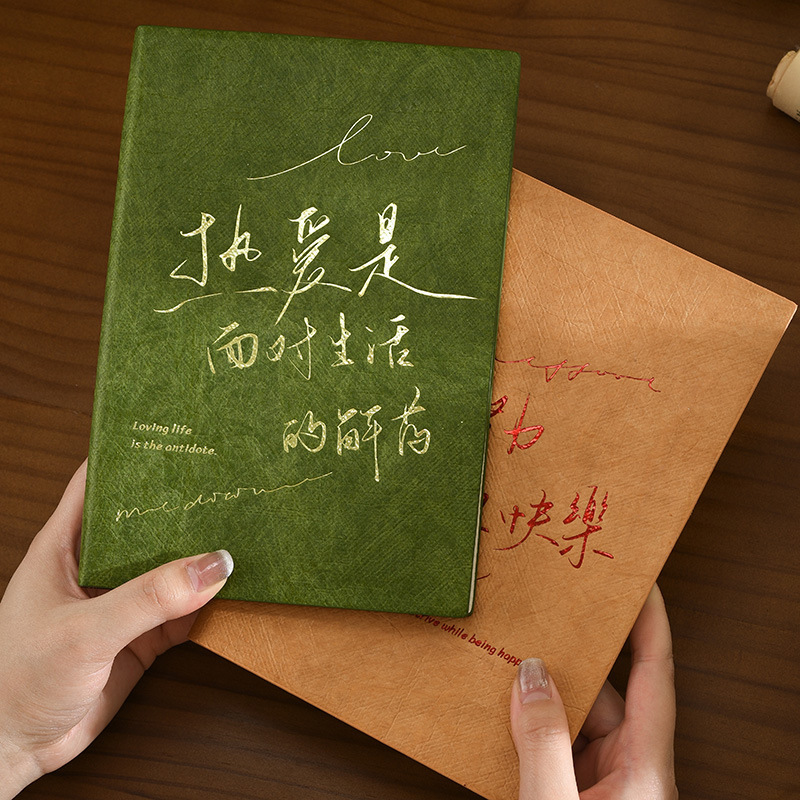 love
热爱是
面对生活
的解药
Loving life
is the antidote.
快樂
while being happ